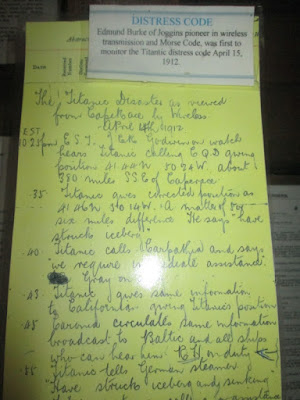 DISTRESS CODE
Edmund Burke of Joggins pioneer in wireless
transmission and Morse Code, was first to
monitor the Titanic distress code April 15,
1912.
The Titanic Disaster as viewed
from Cape Race by Wireless.
April 14th 1912
EST
10 25 pm E.S.T. J.C.R. Godwin on watch
hears Titanic calling C.Q.D giving
position 41.44 N 50.24 W. about
380 miles SSE of Caperace.
35 Titanic gives corrected position as
41.46 N 50 14 W. A matter of 5 or
six miles difference. He says "have
struck iceberg"
40 Titanic calls Carpathia and says
"we require immediate assistance"
Gray on
43 Titanic gives same information
to Californian giving Titanic's position
45 Caronia circulates same information
broadcast to Baltic and all ships
who can hear him. on duty
55 Titanic tells German steamer
"Have struck iceberg and sinking"